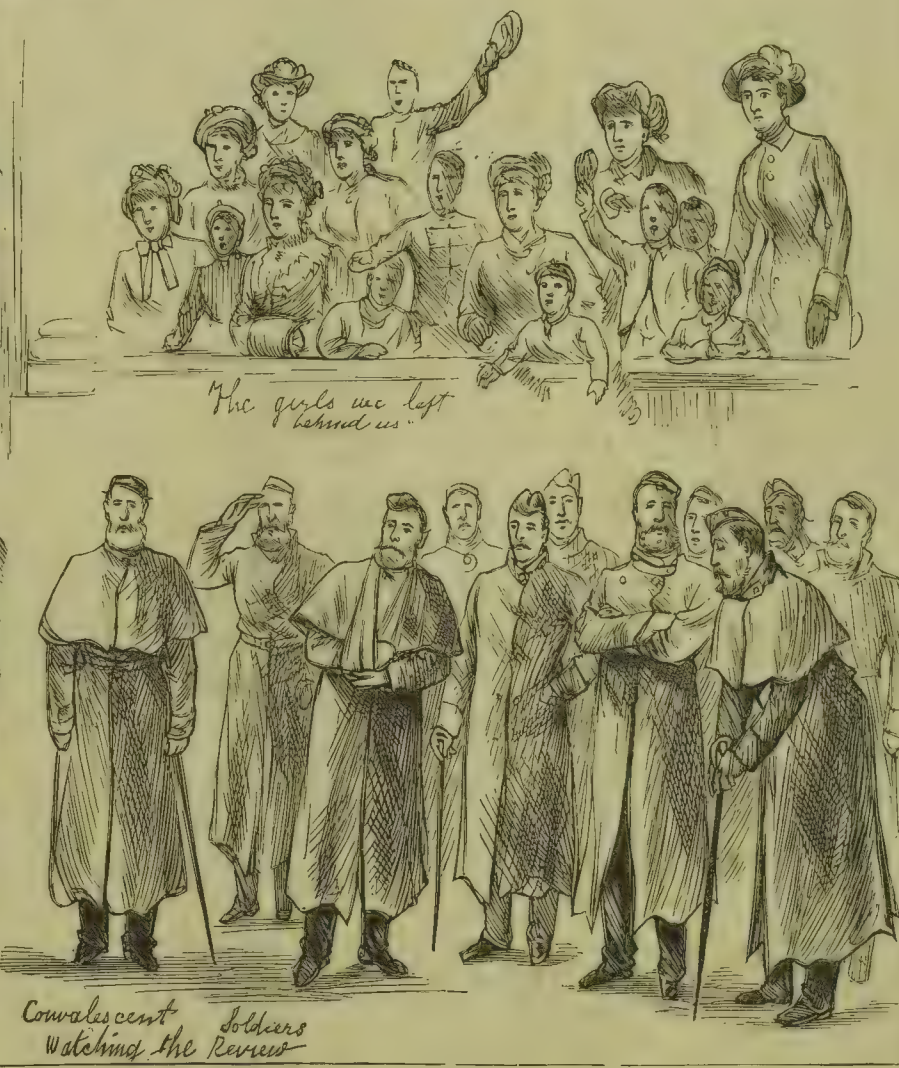 The girls we left
behind us"
Convalescent Soldiers
Watching the Review